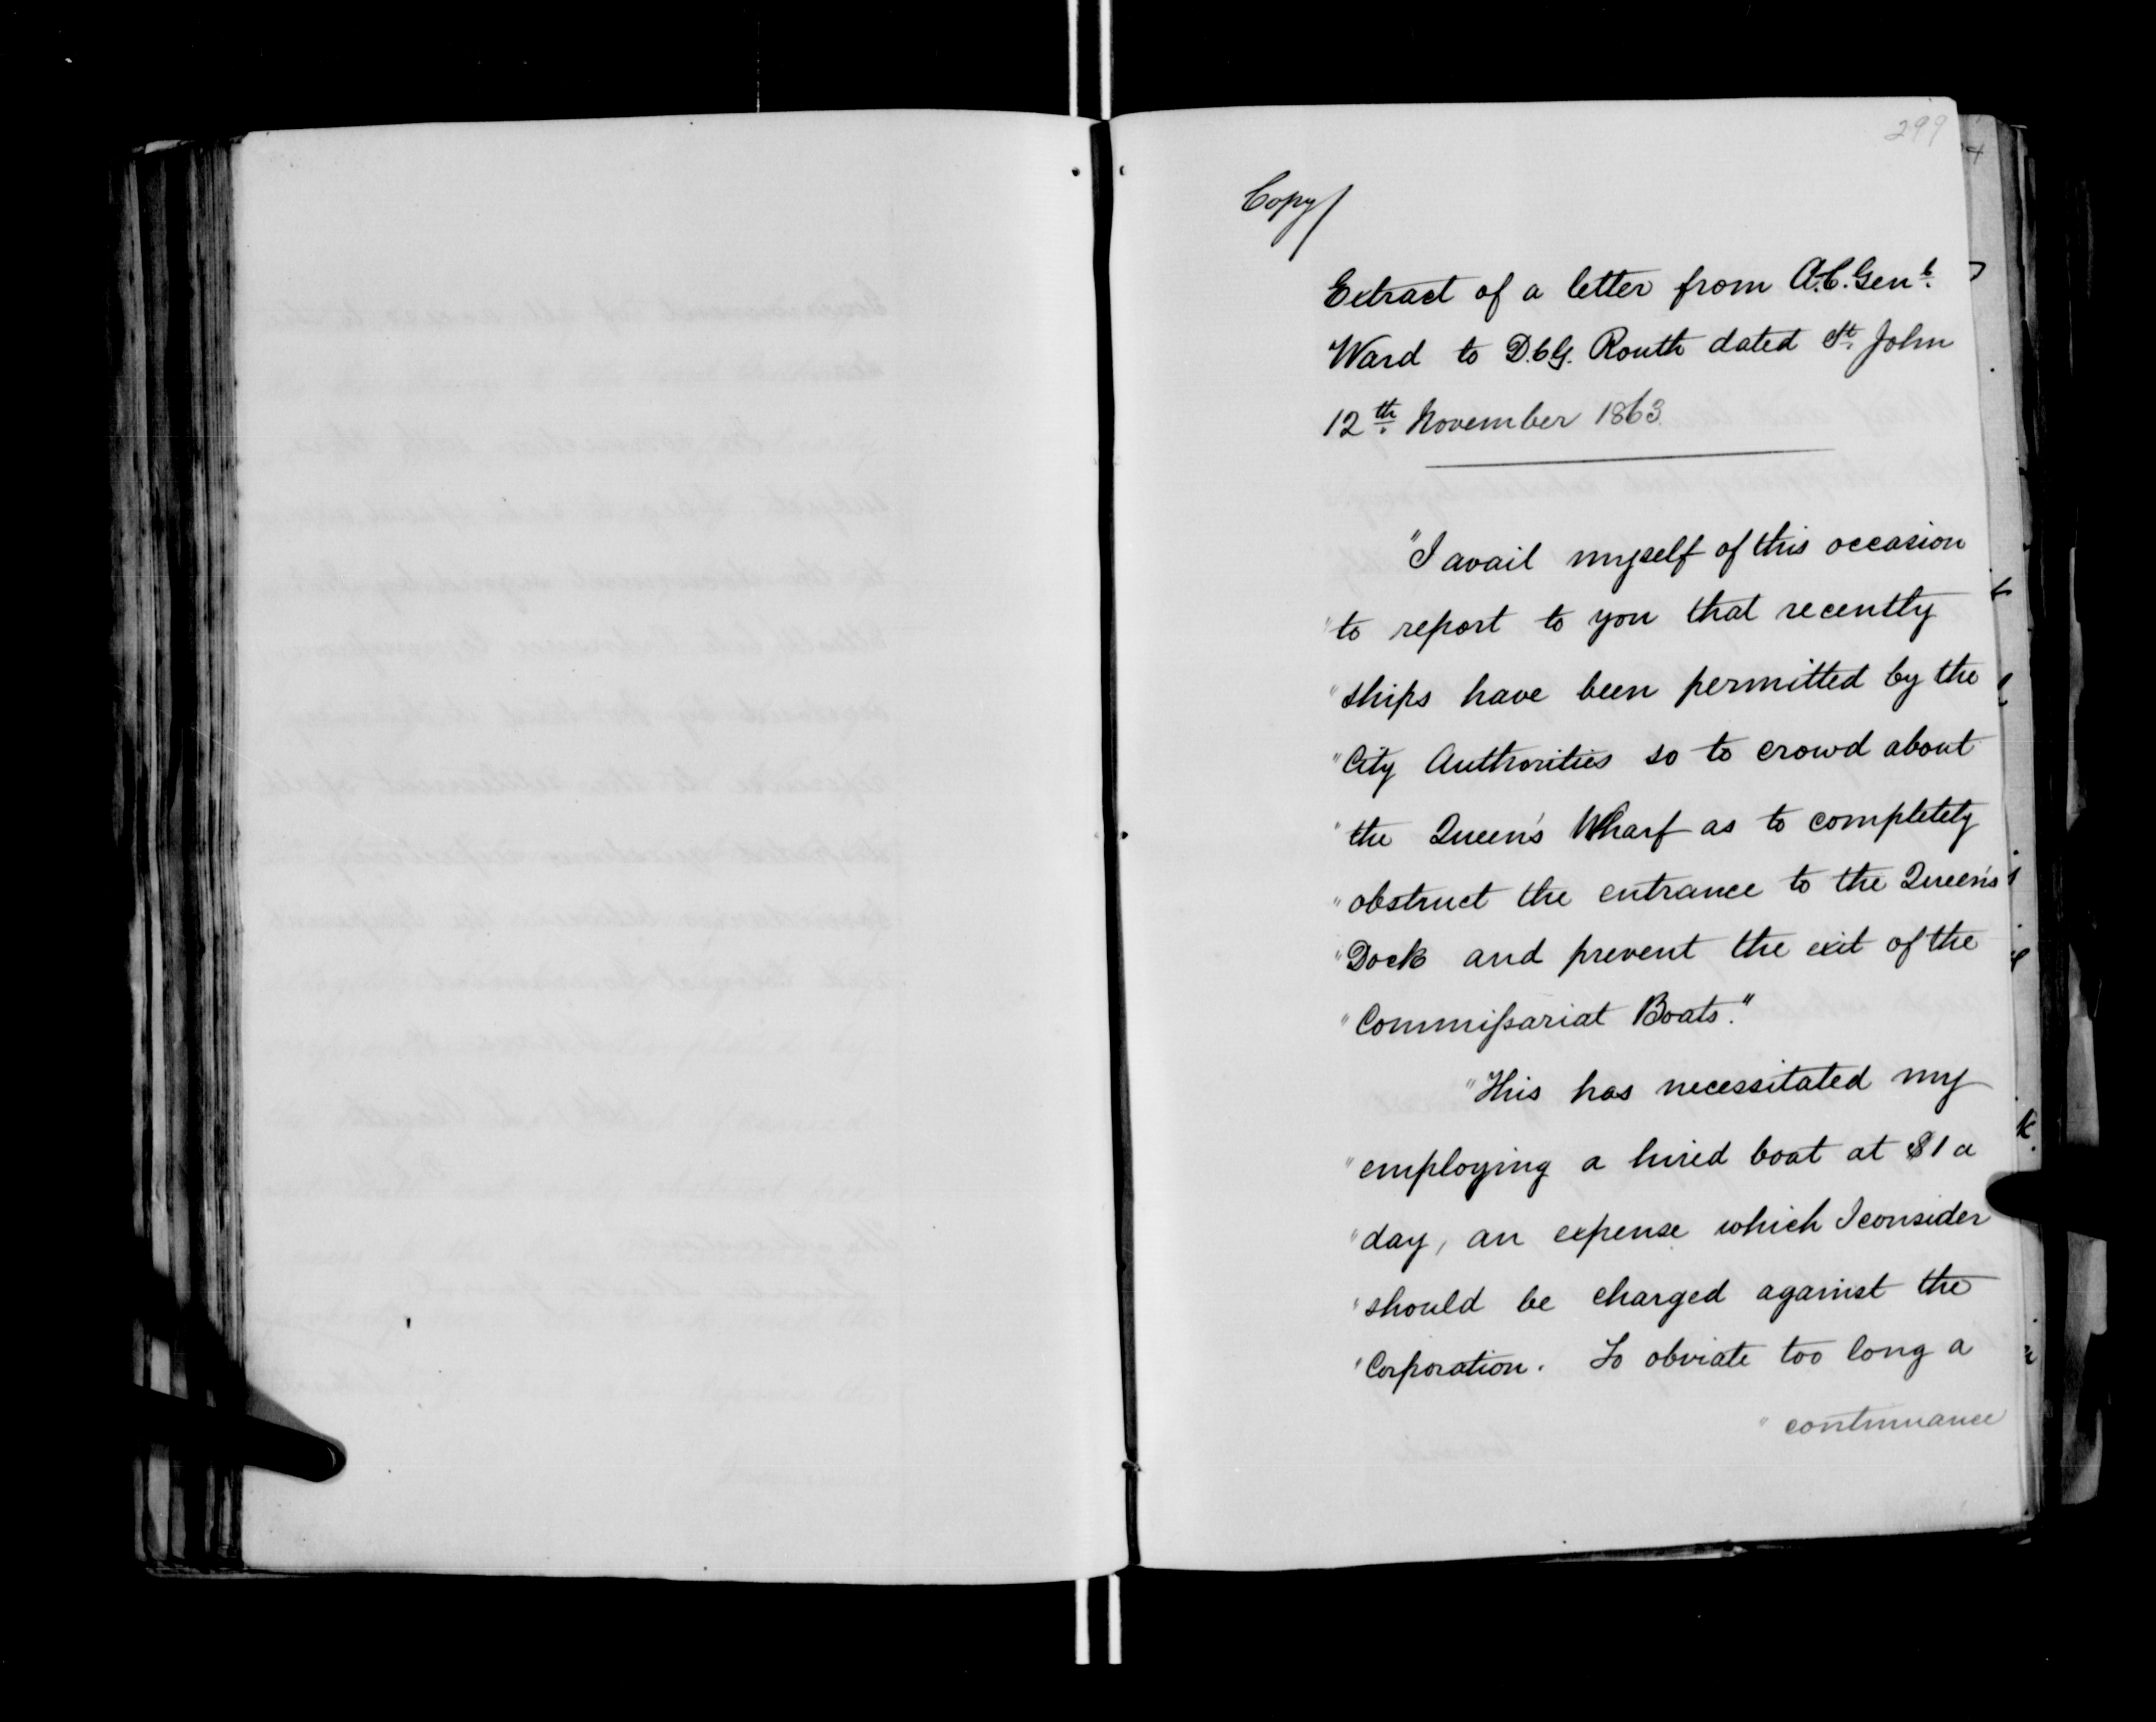 299
Copy/
Extract of a letter from A.C. Genl.
Ward to D.C.G. Routh dated St. John
12th November 1863.
"I avail myself of this occasion
"to report to you that recently
"ships have been permitted by the
"City Authorities so to crowd about
"the Queen's Wharf as to completely
"obstruct the entrance to the Queen's
"Dock and prevent the exit of the
"Commissariat Boats."
"This has necessitated my
"employing a hired boat at $1 a
"day, an expense which I consider
"should be charged against the
"Corporation. To obviate too long a
"continuance